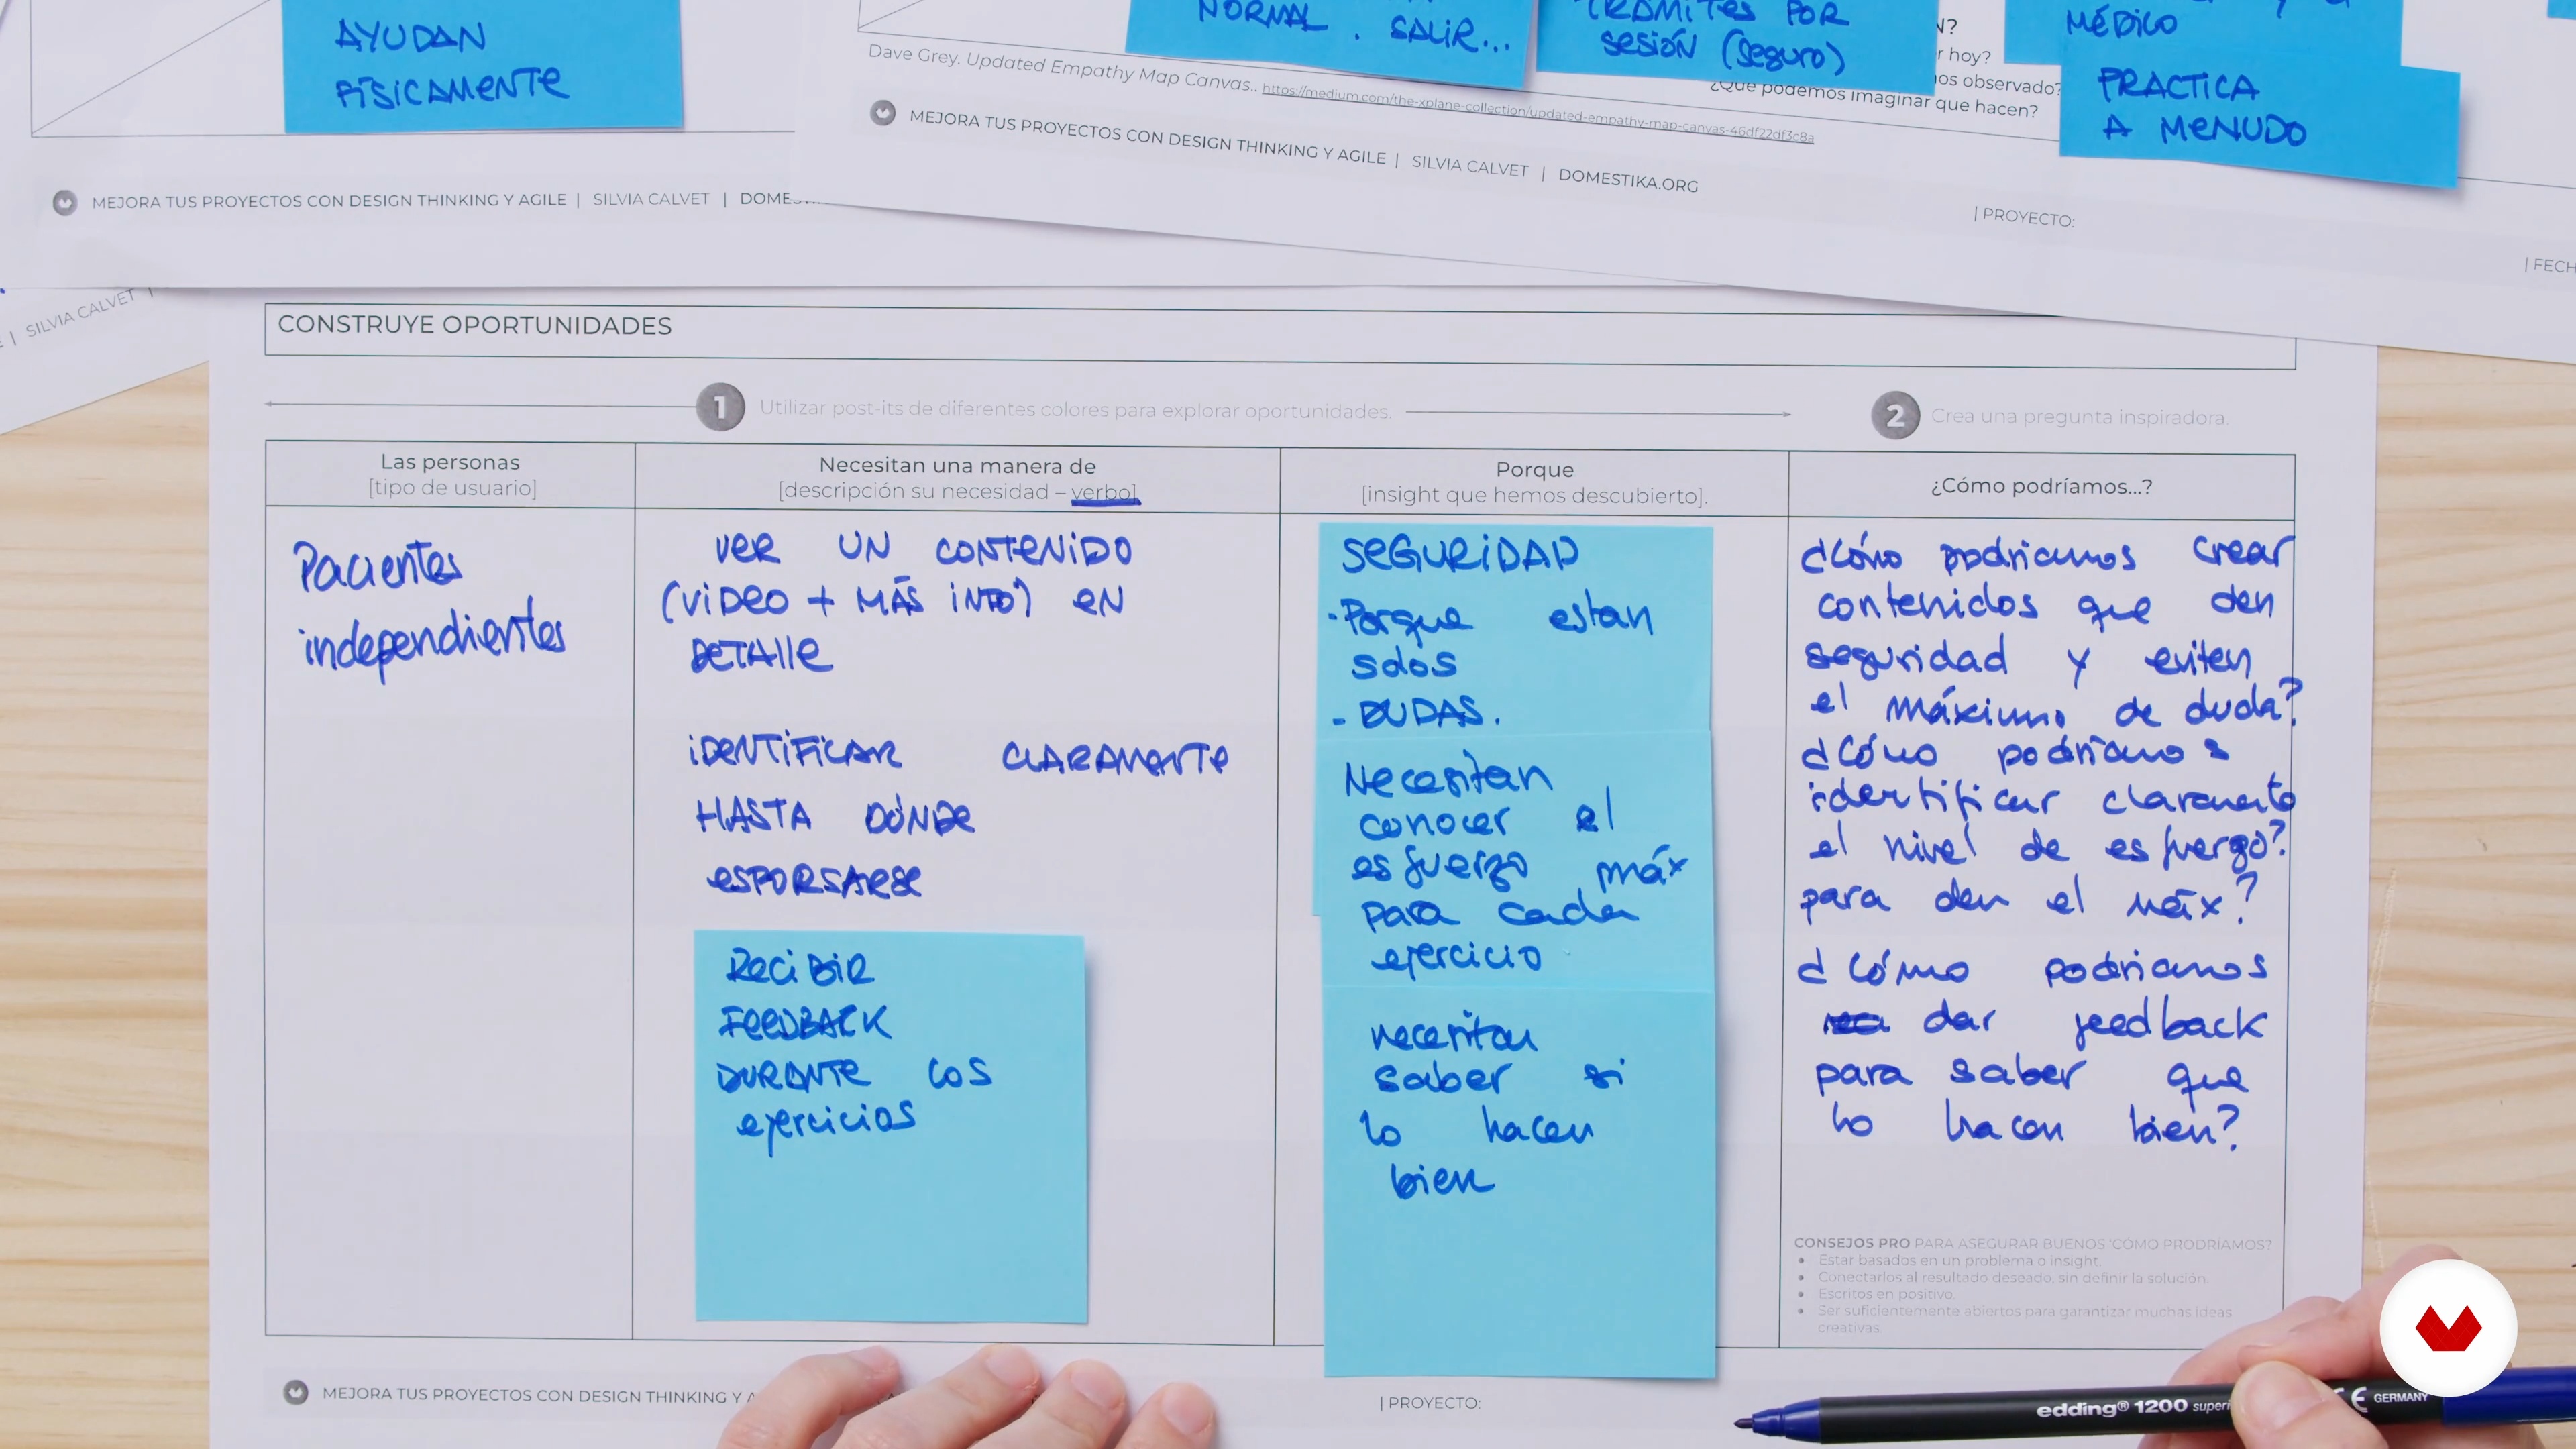 AYUDAN
FÍSICAMENTE
MEJORA TUS PROYECTOS CON DESIGN THINKING Y AGILE | SILVIA CALVET |
NORMAL . SALIR...
TRÁMITES POR
SESIÓN (SEGURO)
Dave Grey. Updated Empathy Map Canvas.. https://medium.com/the-xplane-collection/updated-empathy-map-canvas-46df22df3c8a
hoy?
observado?
¿Qué podemos imaginar que hacen?
MEJORA TUS PROYECTOS CON DESIGN THINKING Y AGILE | SILVIA CALVET | DOMESTIKA.ORG
| PROYECTO:
MÉDICO
PRACTICA
A MENUDO
| SILVIA CALVET |
CONSTRUYE OPORTUNIDADES
1 Utilizar post-its de diferentes colores para explorar oportunidades.
2 Crea una pregunta inspiradora.
Las personas
[tipo de usuario]
Necesitan una manera de
[descripción su necesidad – verbo]
Porque
[insight que hemos descubierto].
¿Cómo podríamos...?
Pacientes
independientes
VER UN CONTENIDO
(VIDEO + MÁS INFO) EN
DETALLE
IDENTIFICAR CLARAMENTE
HASTA DÓNDE
ESFORSARSE
RECIBIR
FEEDBACK
DURANTE LOS
ejercicios
SEGURIDAD
- Porque estan
solos
- DUDAS.
Necesitan
conocer el
esfuerzo máx
para cada
ejercicio
necesitan
saber si
lo hacen
bien
¿Cómo podriamos crear
contenidos que den
seguridad y eviten
el máximo de duda?
¿Cómo podríamos
identificar claramente
el nivel de esfuerzo?
para den el máx?
¿Cómo podriamos
dar feedback
para saber que
lo hacen bien?
CONSEJOS PRO PARA ASEGURAR BUENOS 'CÓMO PRODRÍAMOS?
• Estar basados en un problema o insight.
• Conectarlos al resultado deseado, sin definir la solución.
• Escritos en positivo.
• Ser suficientemente abiertos para garantizar muchas ideas
creativas.
MEJORA TUS PROYECTOS CON DESIGN THINKING Y
| PROYECTO:
edding® 1200
CE GERMANY